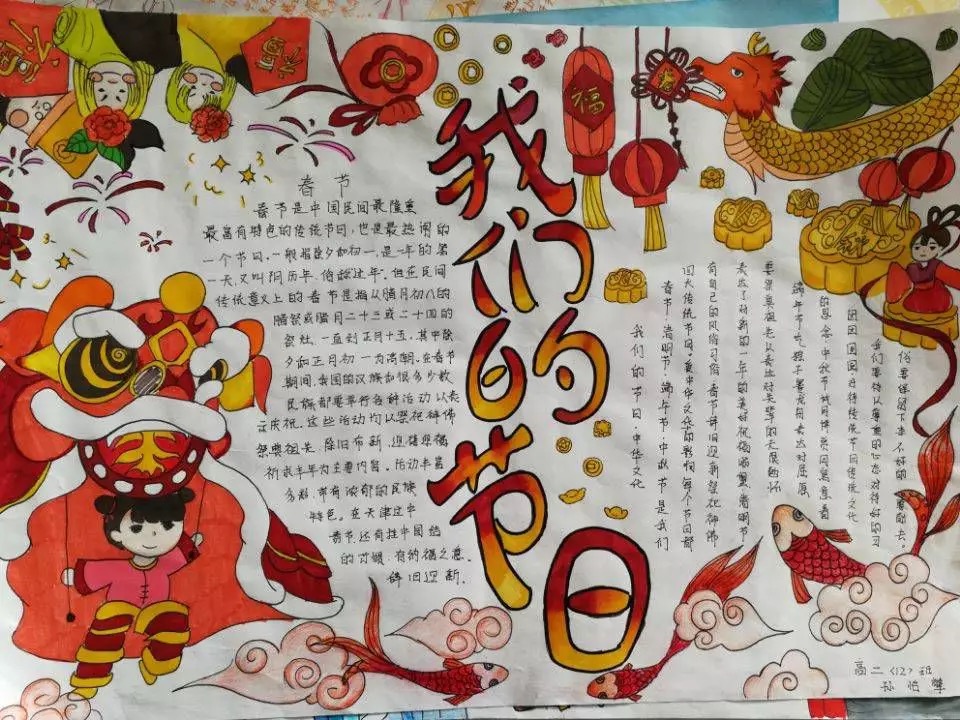 我们的节日
福
春节
春节是中国民间最隆重
最富有特色的传统节日,也是最热闹的
一个节日。一般指除夕和初一,是一年的第
一天又叫阴历年,俗称过年。但在民间
传统意义上的春节是指从腊月初八的
腊祭或腊月二十三或二十四的
祭灶,一直到正月十五,其中除
夕和正月初一为高潮。在春节
期间,我国的汉族和很多少数
民族都要举行各种活动以表
示庆祝。这些活动均以祭祀神佛
祭奠祖先、除旧布新、迎禧接福
祈求丰年为主要内容。活动丰富
多彩,带有浓郁的民族
特色。在天津过年
春节还有挂中国结
的习惯,有纳福之意、
辞旧迎新.
我们的节日·中华文化
春节、清明节、端午节、中秋节是我们
四大传统节日。是中华文化的影响每个节日都
有自己的风俗习俗,春节辞旧迎新祭祀神佛
表达了对新的一年的美好祝福愿望,清明节
要祭奠祖先以表达对先辈的无限缅怀
端午节吃粽子赛龙舟表达对屈原
的思念,中秋节团圆意着
团团圆圆对待传统节日传统文化
我们要以尊重的心态对待好的习
俗要保留下来不好的要去。
高二〈12〉班
孙怡